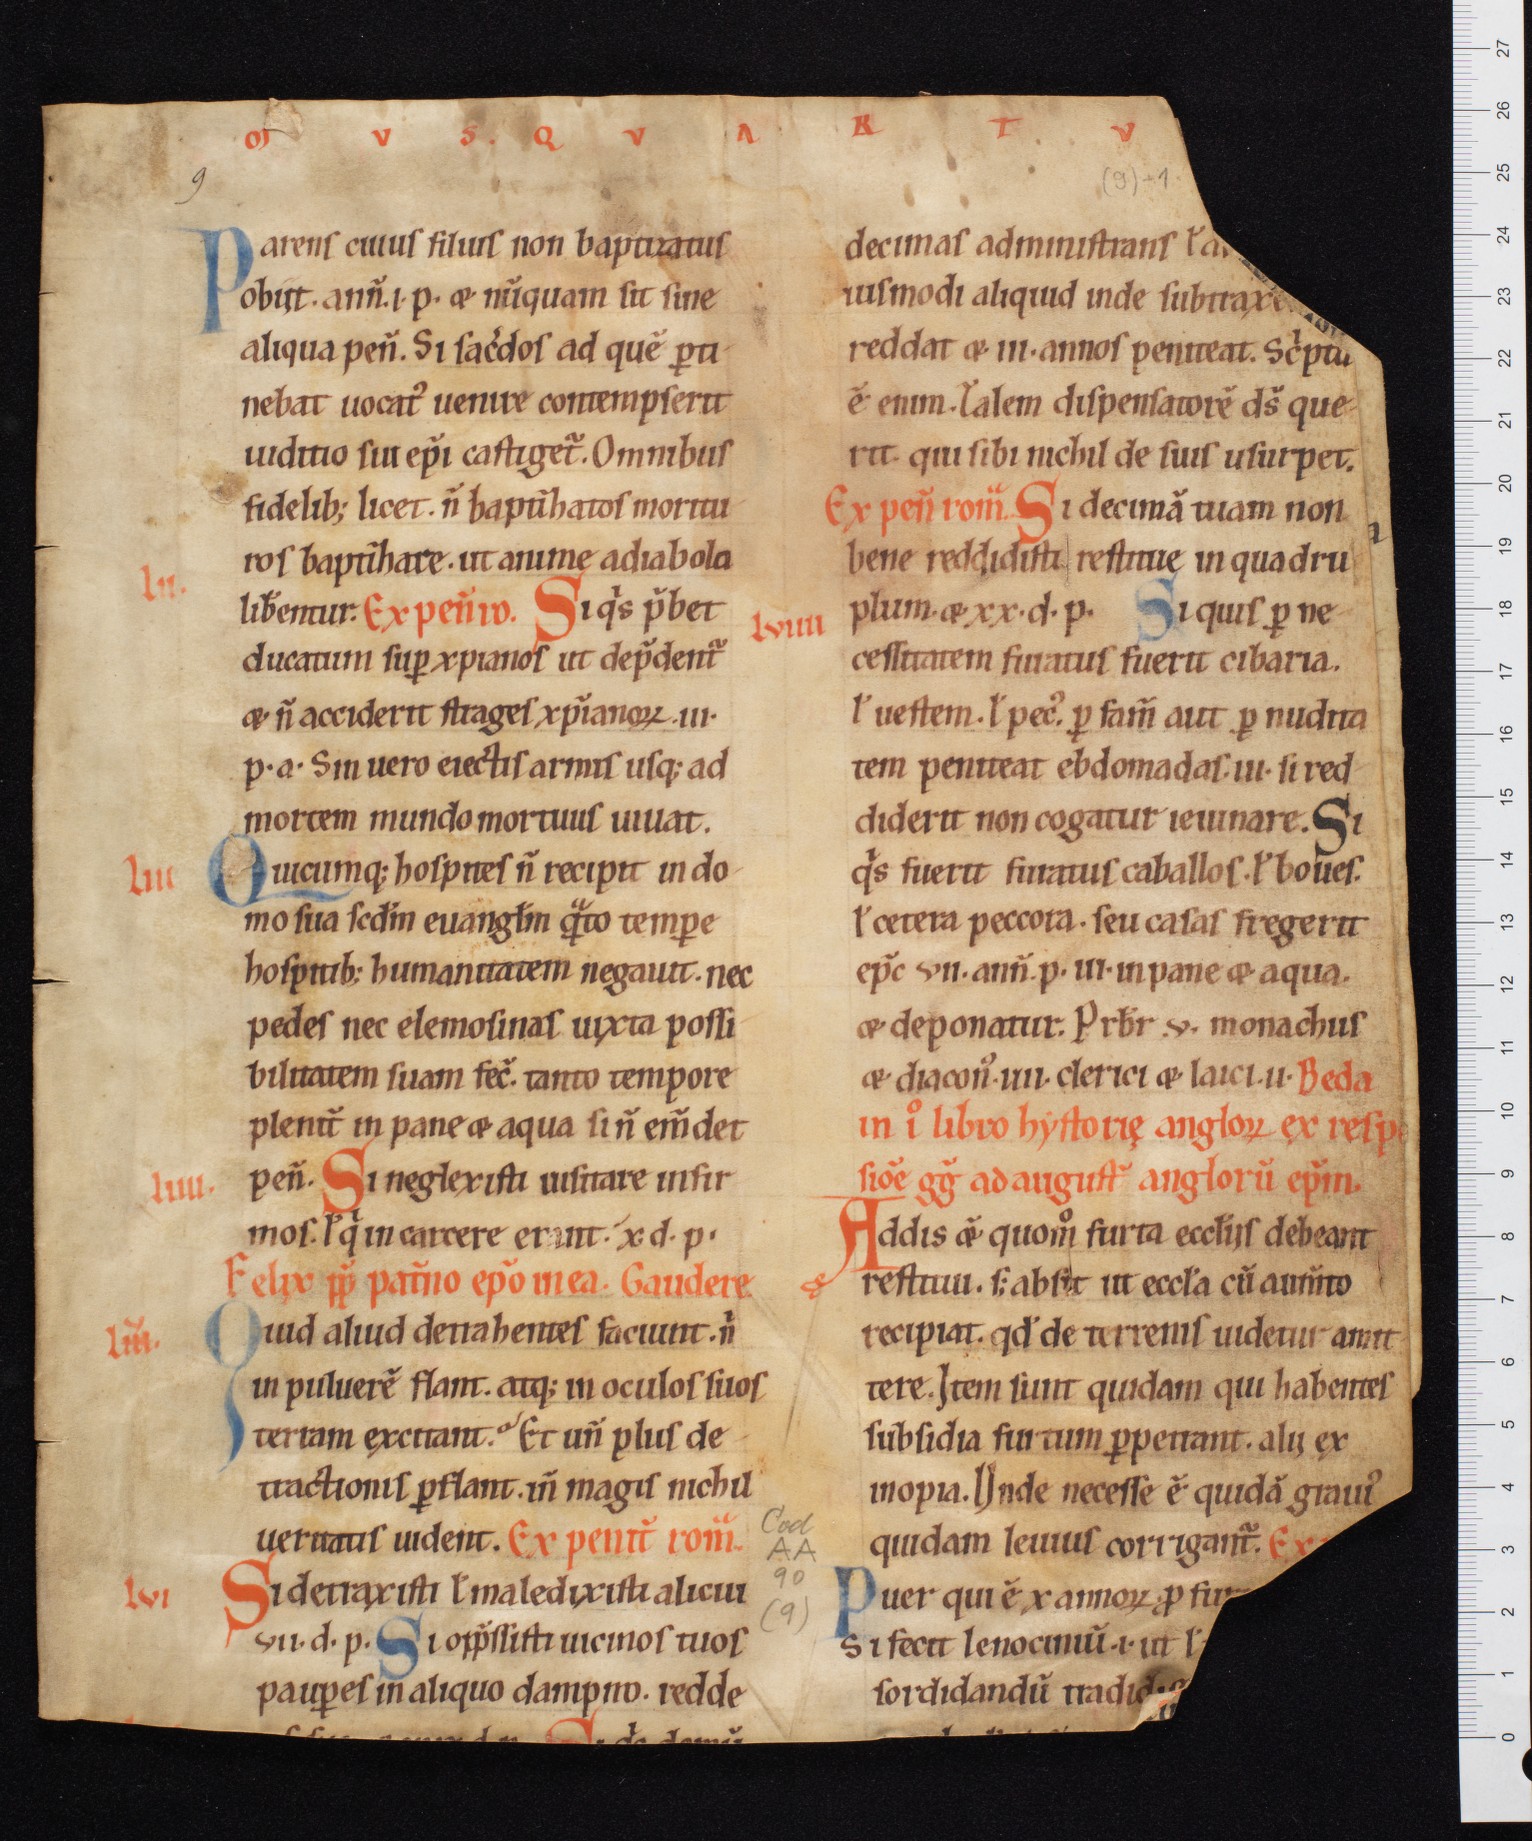 O V S . Q V A R T V
9
(9)+1
Parens cuius filius non baptizatus
obiit. ann̄. i. p. & nūquam sit sine
aliqua pen̄. Si sac̄dos ad quē ꝑti
nebat uocat᷒ uenire contempserit
uiditio sui ep̄i castiget᷑. Omnibus
fidelib; licet. n̄ baptihatos moritu
ros baptihare. ut anime a diabolo
lib̄entur. Ex pen̄ ro. Si q̇s p̄bet
lii.
ducatum suꝑ xp̄ianos ut dep̄dent᷑
& n̄ acciderit strages xp̄ianoꝝ .iii.
p. a. Sin uero eiectis armis usq; ad
mortem mundo mortuus uiuat.
liii
Quicumq; hospites n̄ recipit in do
mo sua scd̄m euangl̄m q̄to temꝑe
hospitib; humanitatem negauit. nec
pedes nec elemosinas iuxta possi
bilitatem suam fec̄. tanto tempore
plenit᷑ in pane & aqua si n̄ em̄det
liiii.
pen̄. Si neglexisti uisitare infir
mos. ł q̇ in carcere erant. x. d. p.
Felix pp̄ pat̄no ep̄o in ea. Gaudere
liii.
Quid aliud detrahentes faciunt. n̄
in puluerē flant. atq; in oculos suos
terram excitant. Et un̄ plus de
tractionis ꝑflant. in̄ magis nichil
ueritatis uident. Ex penit᷑ rom̄.
lvi
Si detraxisti ł maledixisti alicui
vii. d. p. Si opp̄ssisti uicinos tuos
pauꝑes in aliquo dampno. redde
decimas administrans ł
iusmodi aliquid inde subtrax
reddat & iii. annos peniteat. Sc̄ptū
ē enim. Talem dispensatorē dn̄s que
rit qui sibi nichil de suis usurpet.
Ex pen̄ rom̄. Si decimā tuam non
bene reddidisti restitue in quadru
lviiii
plum. & xx. d. p. Si quis ꝑ ne
cessitatem furatus fuerit cibaria.
ł uestem. ł pec᷒. ꝑ fam̄ aut ꝑ nudita
tem peniteat ebdomadas. iii. si red
diderit non cogatur ieiunare. Si
q̇s fuerit furatus caballos. ł boues.
ł cetera peccora. seu casas fregerit
ep̄c vii. ann̄. p. iii. in pane & aqua.
& deponatur. Prb̄r v. monachus
& diacon᷒. iiii. clerici & laici. ii. Beda
in i̊ libro hystorię angloꝝ ex resp
siōe gḡ ad august᷑ anglorū ep̄m.
Addis &̄ quom̊ furta eccl̄iis debeant
restitui. s; absit ut eccl̄a cū aum̄to
recipiat. qd̄ de terrenis uidetur amit
tere. Item sunt quidam qui habentes
subsidia furtum ꝑpetrant. alii ex
inopia. Unde necesse ē quidā graui᷒
quidam leuius corrigant᷑. Ex
Puer qui ē x annoꝝ ꝑ fur
Si fecit lenociniū .i. ut ł
sordidandū tradid
Cod
AA
90
(9)